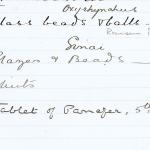 Oxyrhynchus
Glass beads & balls —
Sinai
Glazes & Beads —
Tablet of Panezer, 5th